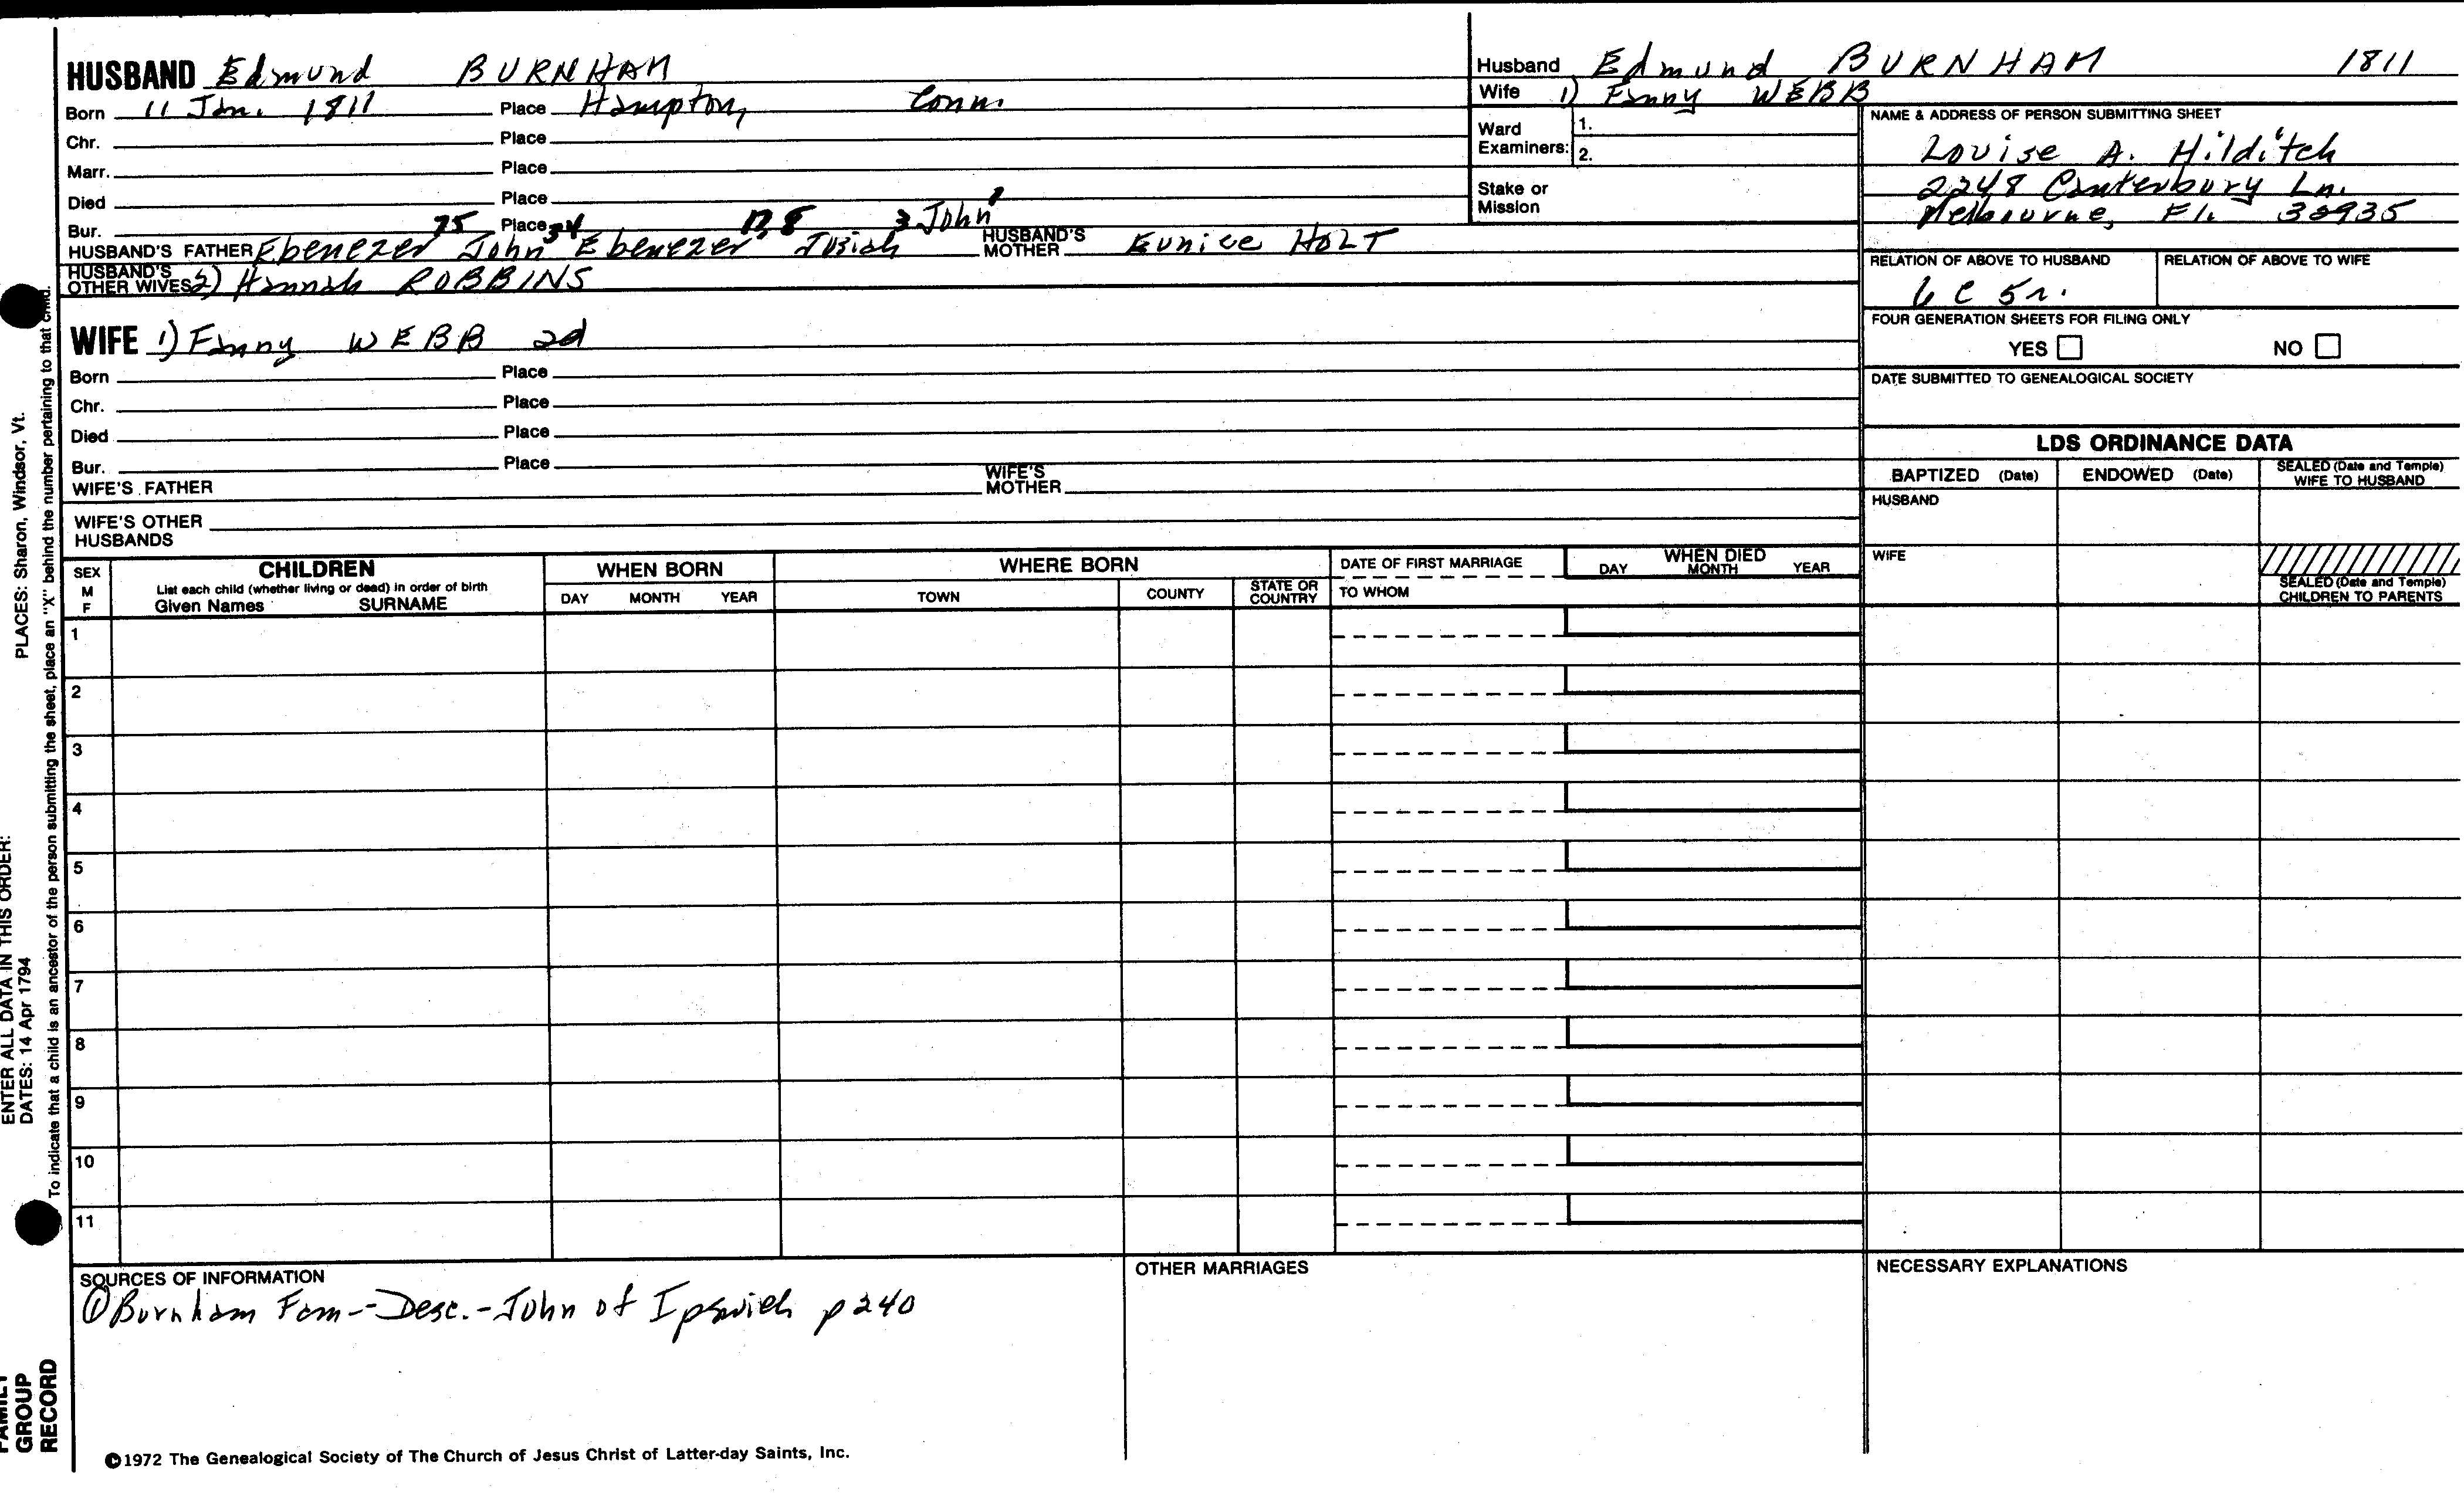 HUSBAND Edmund BURNHAM
Born 11 Jan. 1811 Place Hampton, Conn.
Chr. Place
Marr. Place
Died Place
Bur. Place
HUSBAND'S FATHER Ebenezer 75 John 34 Ebenezer Josiah 3 John 1 HUSBAND'S MOTHER Eunice HOLT
HUSBAND'S OTHER WIVES 2) Hannah ROBBINS
WIFE 1) Fanny WEBB 2d
Born Place
Chr. Place
Died Place
Bur. Place
WIFE'S FATHER WIFE'S MOTHER
WIFE'S OTHER HUSBANDS
Husband Edmund BURNHAM 1811
Wife 1) Fanny WEBB
Ward Examiners: 1.
2.
Stake or Mission
NAME & ADDRESS OF PERSON SUBMITTING SHEET
Louise A. Hilditch
2248 Canterbury Ln.
Melbourne, Fl. 32935
RELATION OF ABOVE TO HUSBAND RELATION OF ABOVE TO WIFE
6 C 5 r.
FOUR GENERATION SHEETS FOR FILING ONLY
YES NO
DATE SUBMITTED TO GENEALOGICAL SOCIETY
LDS ORDINANCE DATA
BAPTIZED (Date) ENDOWED (Date) SEALED (Date and Temple) WIFE TO HUSBAND
HUSBAND
WIFE
SEALED (Date and Temple) CHILDREN TO PARENTS
SEX M F
CHILDREN
List each child (whether living or dead) in order of birth
Given Names SURNAME
WHEN BORN
DAY MONTH YEAR
WHERE BORN
TOWN COUNTY STATE OR COUNTRY
DATE OF FIRST MARRIAGE
TO WHOM
WHEN DIED
DAY MONTH YEAR
1
2
3
4
5
6
7
8
9
10
11
SOURCES OF INFORMATION
① Burnham Fam -- Desc. - John of Ipswich p 240
OTHER MARRIAGES
NECESSARY EXPLANATIONS
©1972 The Genealogical Society of The Church of Jesus Christ of Latter-day Saints, Inc.
FAMILY GROUP RECORD
ENTER ALL DATA IN THIS ORDER:
DATES: 14 Apr 1794 PLACES: Sharon, Windsor, Vt.
To indicate that a child is an ancestor of the person submitting the sheet, place an "X" behind the number pertaining to that child.